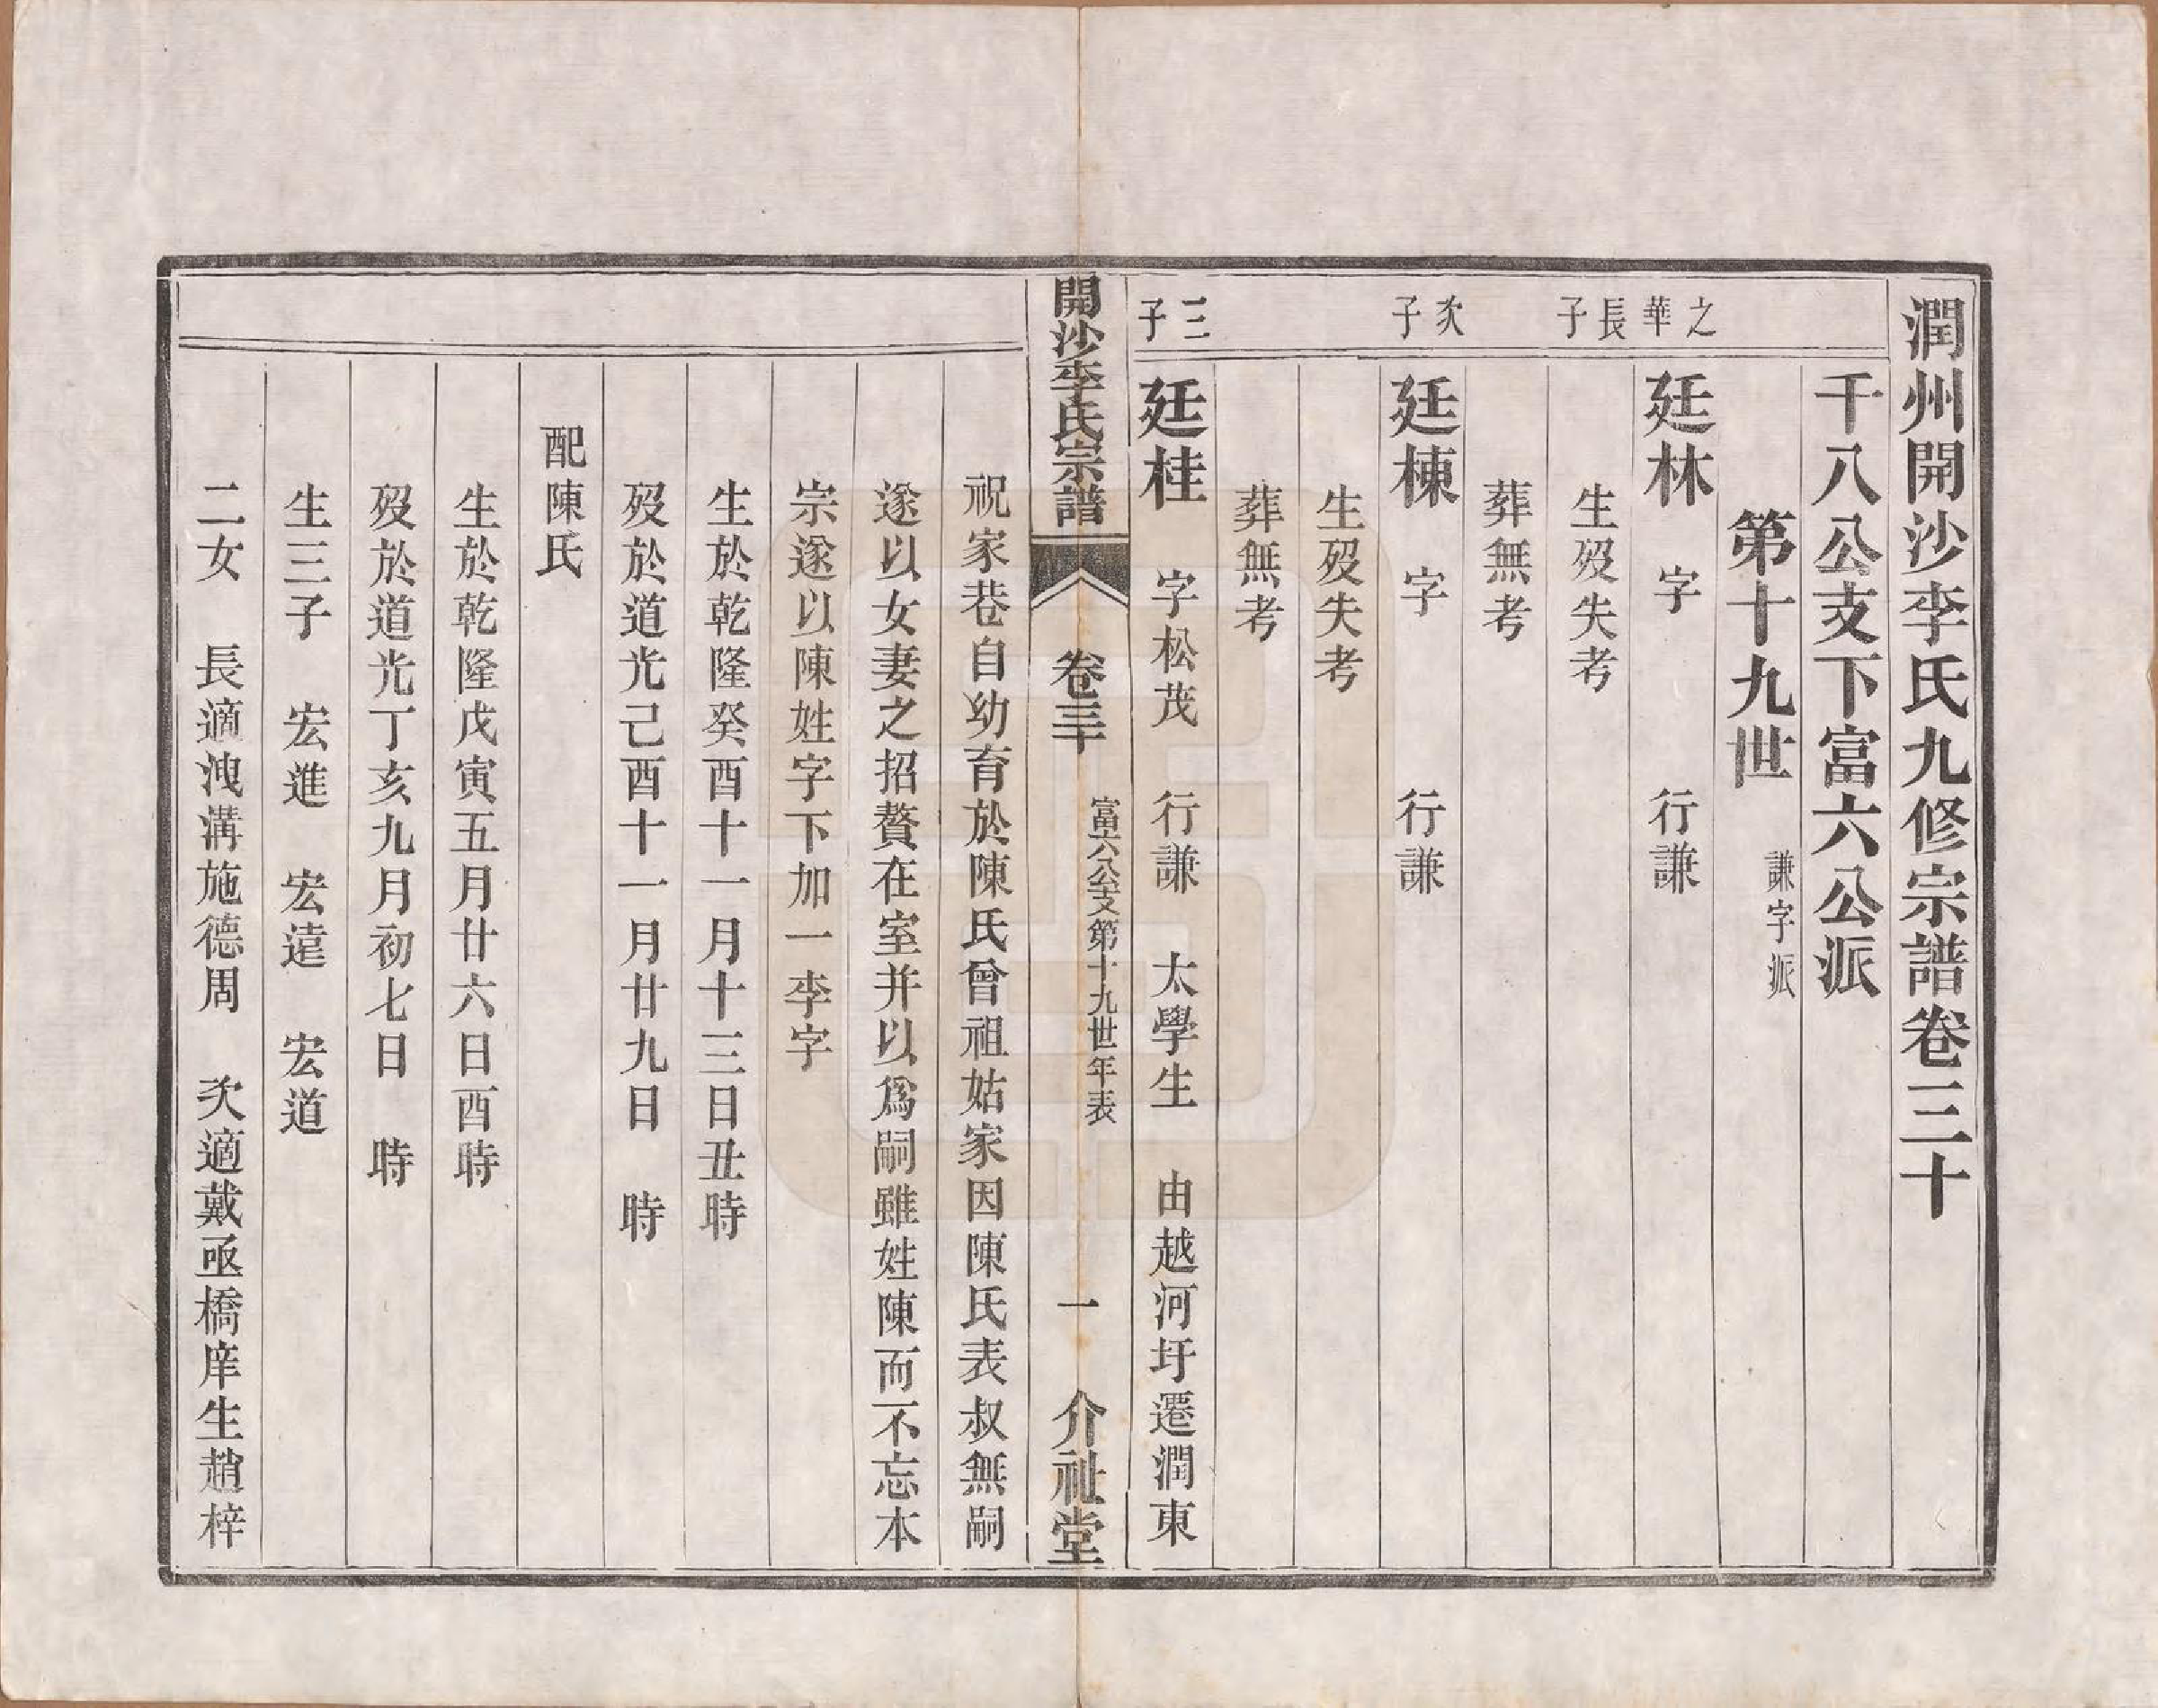 潤州開沙李氏九修宗譜卷三十
千八公支下富六公派
第十九世 謙字派
之華長子
廷林 字 行謙
生歿失考
葬無考
次子
廷棟 字 行謙
生歿失考
葬無考
三子
廷桂 字松茂 行謙 太學生 由越河圩遷潤東
開沙李氏宗譜 卷三十 富六公支第十九世年表 一 介祉堂
祝家巷自幼育於陳氏曾祖姑家因陳氏表叔無嗣
遂以女妻之招贅在室并以爲嗣雖姓陳而不忘本
宗遂以陳姓字下加一李字
生於乾隆癸酉十一月十三日丑時
歿於道光己酉十一月廿九日 時
配陳氏
生於乾隆戊寅五月廿六日酉時
歿於道光丁亥九月初七日 時
生三子 宏進 宏遠 宏道
二女 長適洩溝施德周 次適戴亟橋庠生趙梓